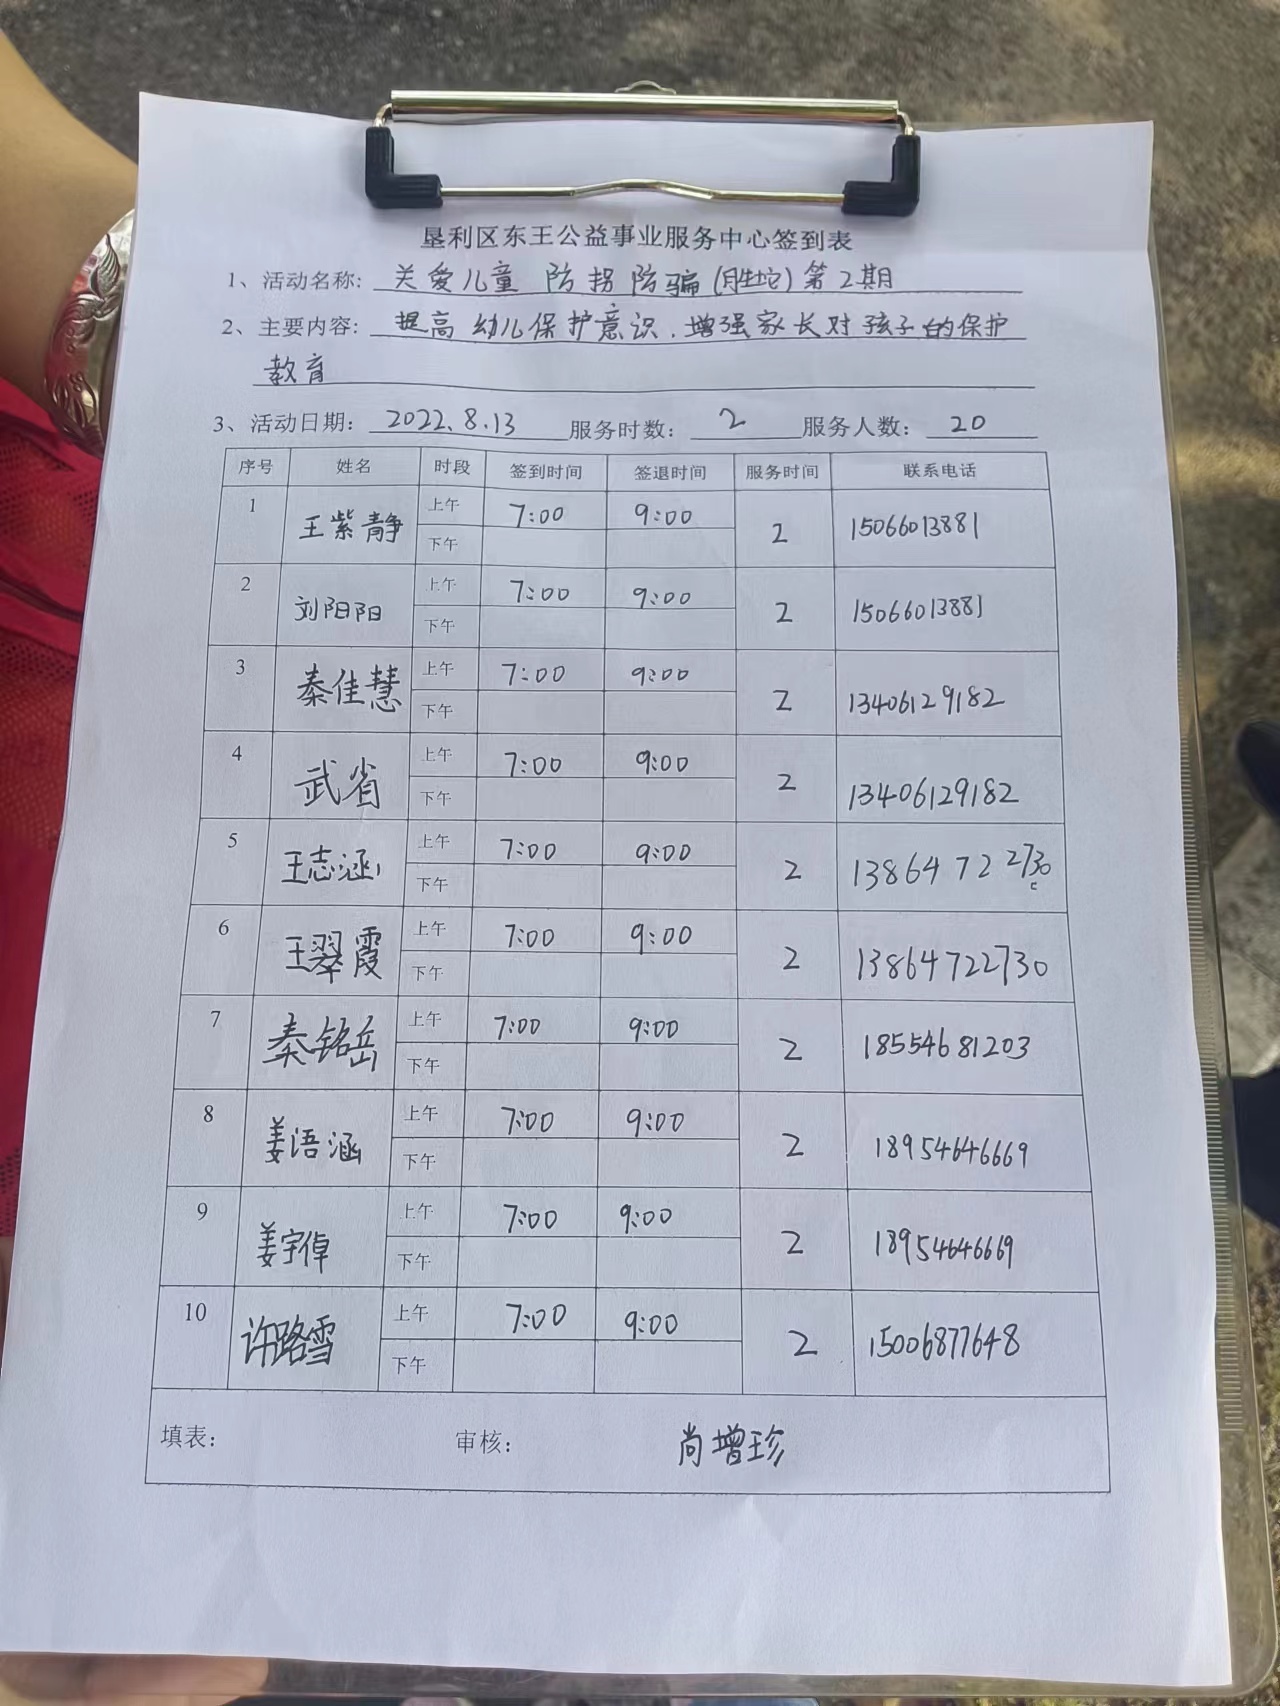 垦利区东王公益事业服务中心签到表
1、活动名称: 关爱儿童 防拐防骗(胜坨)第2期
2、主要内容: 提高幼儿保护意识.增强家长对孩子的保护
教育
3、活动日期: 2022.8.13 服务时数: 2 服务人数: 20
序号 姓名 时段 签到时间 签退时间 服务时间 联系电话
1 王紫静 上午 7:00 9:00 2 15066013881
下午
2 刘阳阳 上午 7:00 9:00 2 15066013881
下午
3 秦佳慧 上午 7:00 9:00 2 13406129182
下午
4 武省 上午 7:00 9:00 2 13406129182
下午
5 王志涵 上午 7:00 9:00 2 13864722730
下午
6 王翠霞 上午 7:00 9:00 2 13864722730
下午
7 秦铭岳 上午 7:00 9:00 2 18554681203
下午
8 姜语涵 上午 7:00 9:00 2 18954646669
下午
9 姜宇倬 上午 7:00 9:00 2 18954646669
下午
10 许路雪 上午 7:00 9:00 2 15006877648
下午
填表: 审核: 尚增珍